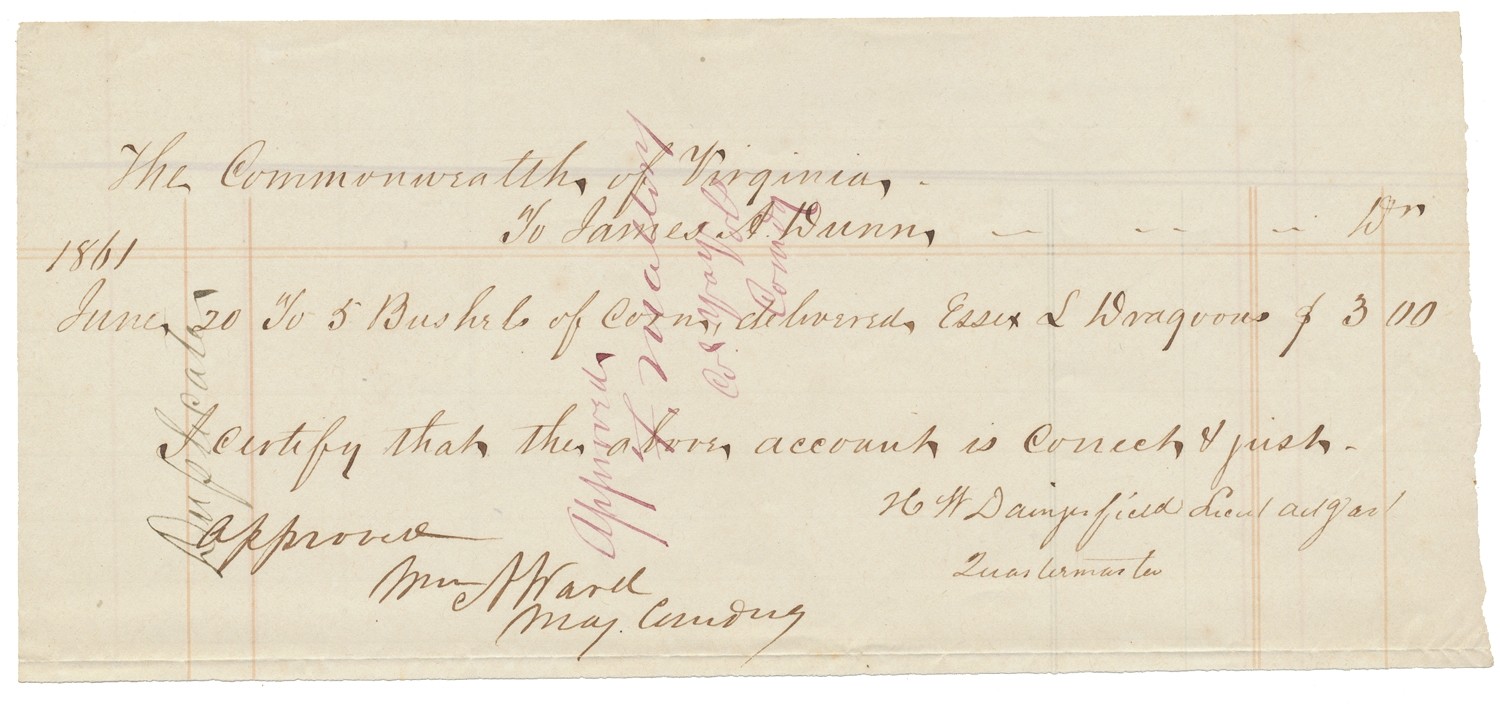 The Commonwealth of Virginia
To James A. Dunn Dr
1861
June 20 To 5 Bushels of Corn, delivered Essex L Dragoons $ 3 00
I certify that the above account is correct & just -
H W Daingerfield Lieut act
Quastermaster
Approved
Wm A Ward
Maj. Comdng
Duplicate
Approved
Col
Comdg